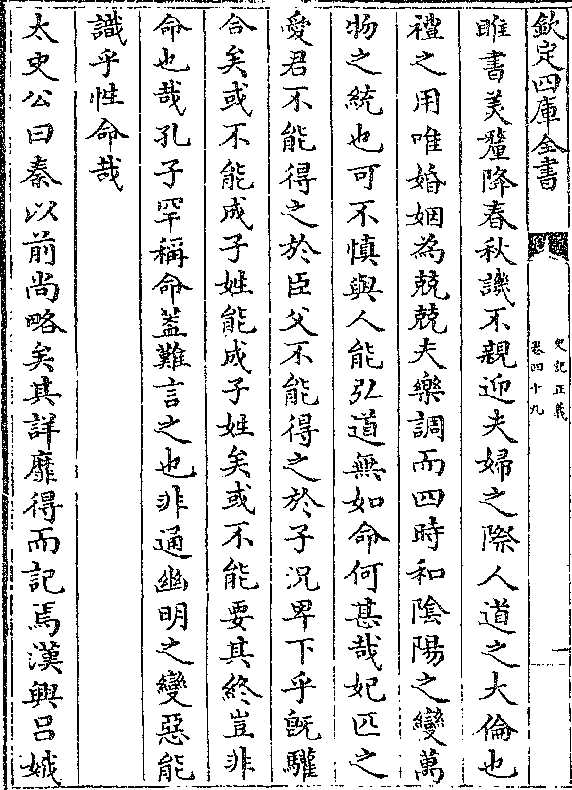 欽定四庫全書
史記正義
卷四十九
一
雎書美釐降春秋譏不親迎夫婦之際人道之大倫也
禮之用唯婚姻為兢兢夫樂調而四時和陰陽之變萬
物之統也可不慎與人能弘道無如命何甚哉妃匹之
愛君不能得之於臣父不能得之於子況卑下乎既驩
合矣或不能成子姓能成子姓矣或不能要其終豈非
命也哉孔子罕稱命蓋難言之也非通幽明之變惡能
識乎性命哉
太史公曰秦以前尚略矣其詳靡得而記焉漢興呂娥